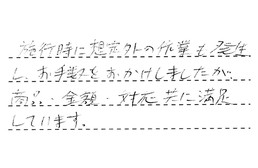 施行時に想定外の作業も発生
し、お手数をおかけしましたが、
商品・金額・対応共に満足
しています。